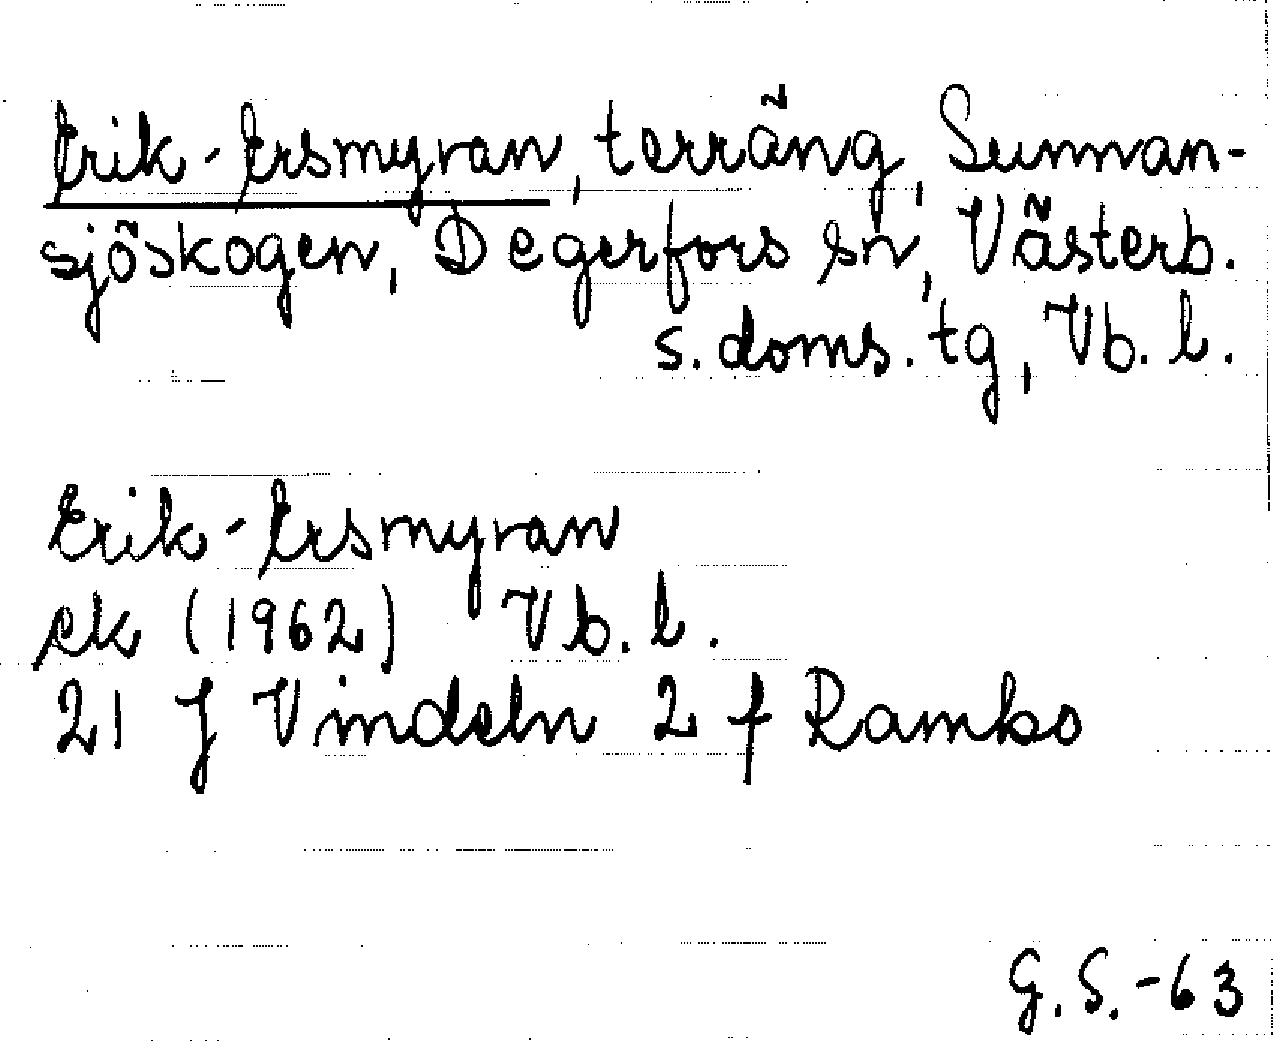 Erik-Ersmyran, terräng, Sunnan-
sjöskogen, Degerfors sn, Västerb.
s. doms. tg, Vb. l.
Erik-Ersmyran
ek (1962) Vb. l.
21 J Vindeln 2 f Rambo
G. S. -63